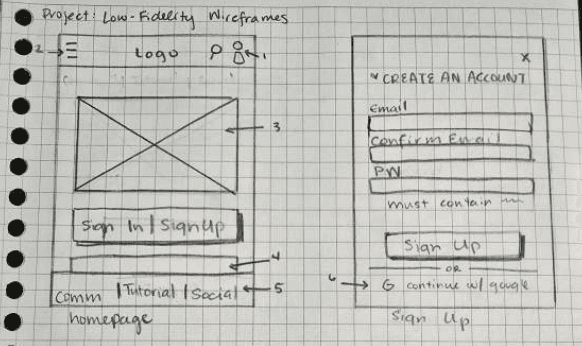 Project: Low-Fidelity Wireframes
2 Logo 1
3
Sign In | Sign Up
4
Comm | Tutorial | Social 5
homepage
x
CREATE AN ACCOUNT
Email
Confirm Email
PW
must contain
Sign Up
OR
6 G continue w/ google
Sign Up